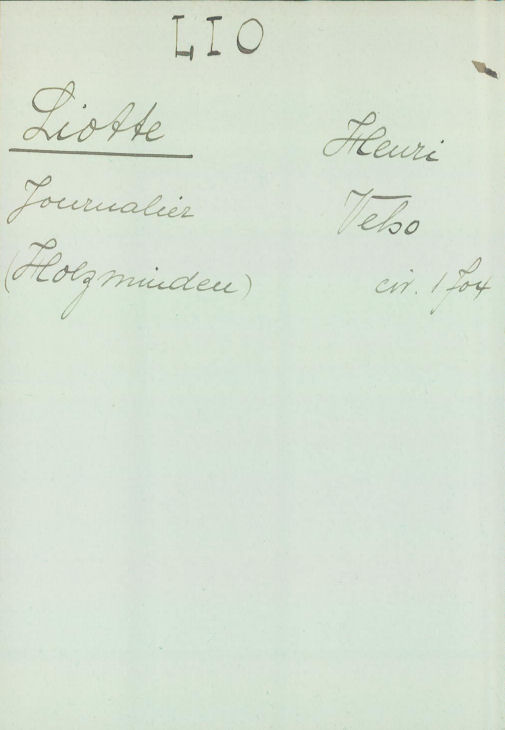 LIO
Liotte Henri
Journalier Velso
(Holzminden) civ. 1704